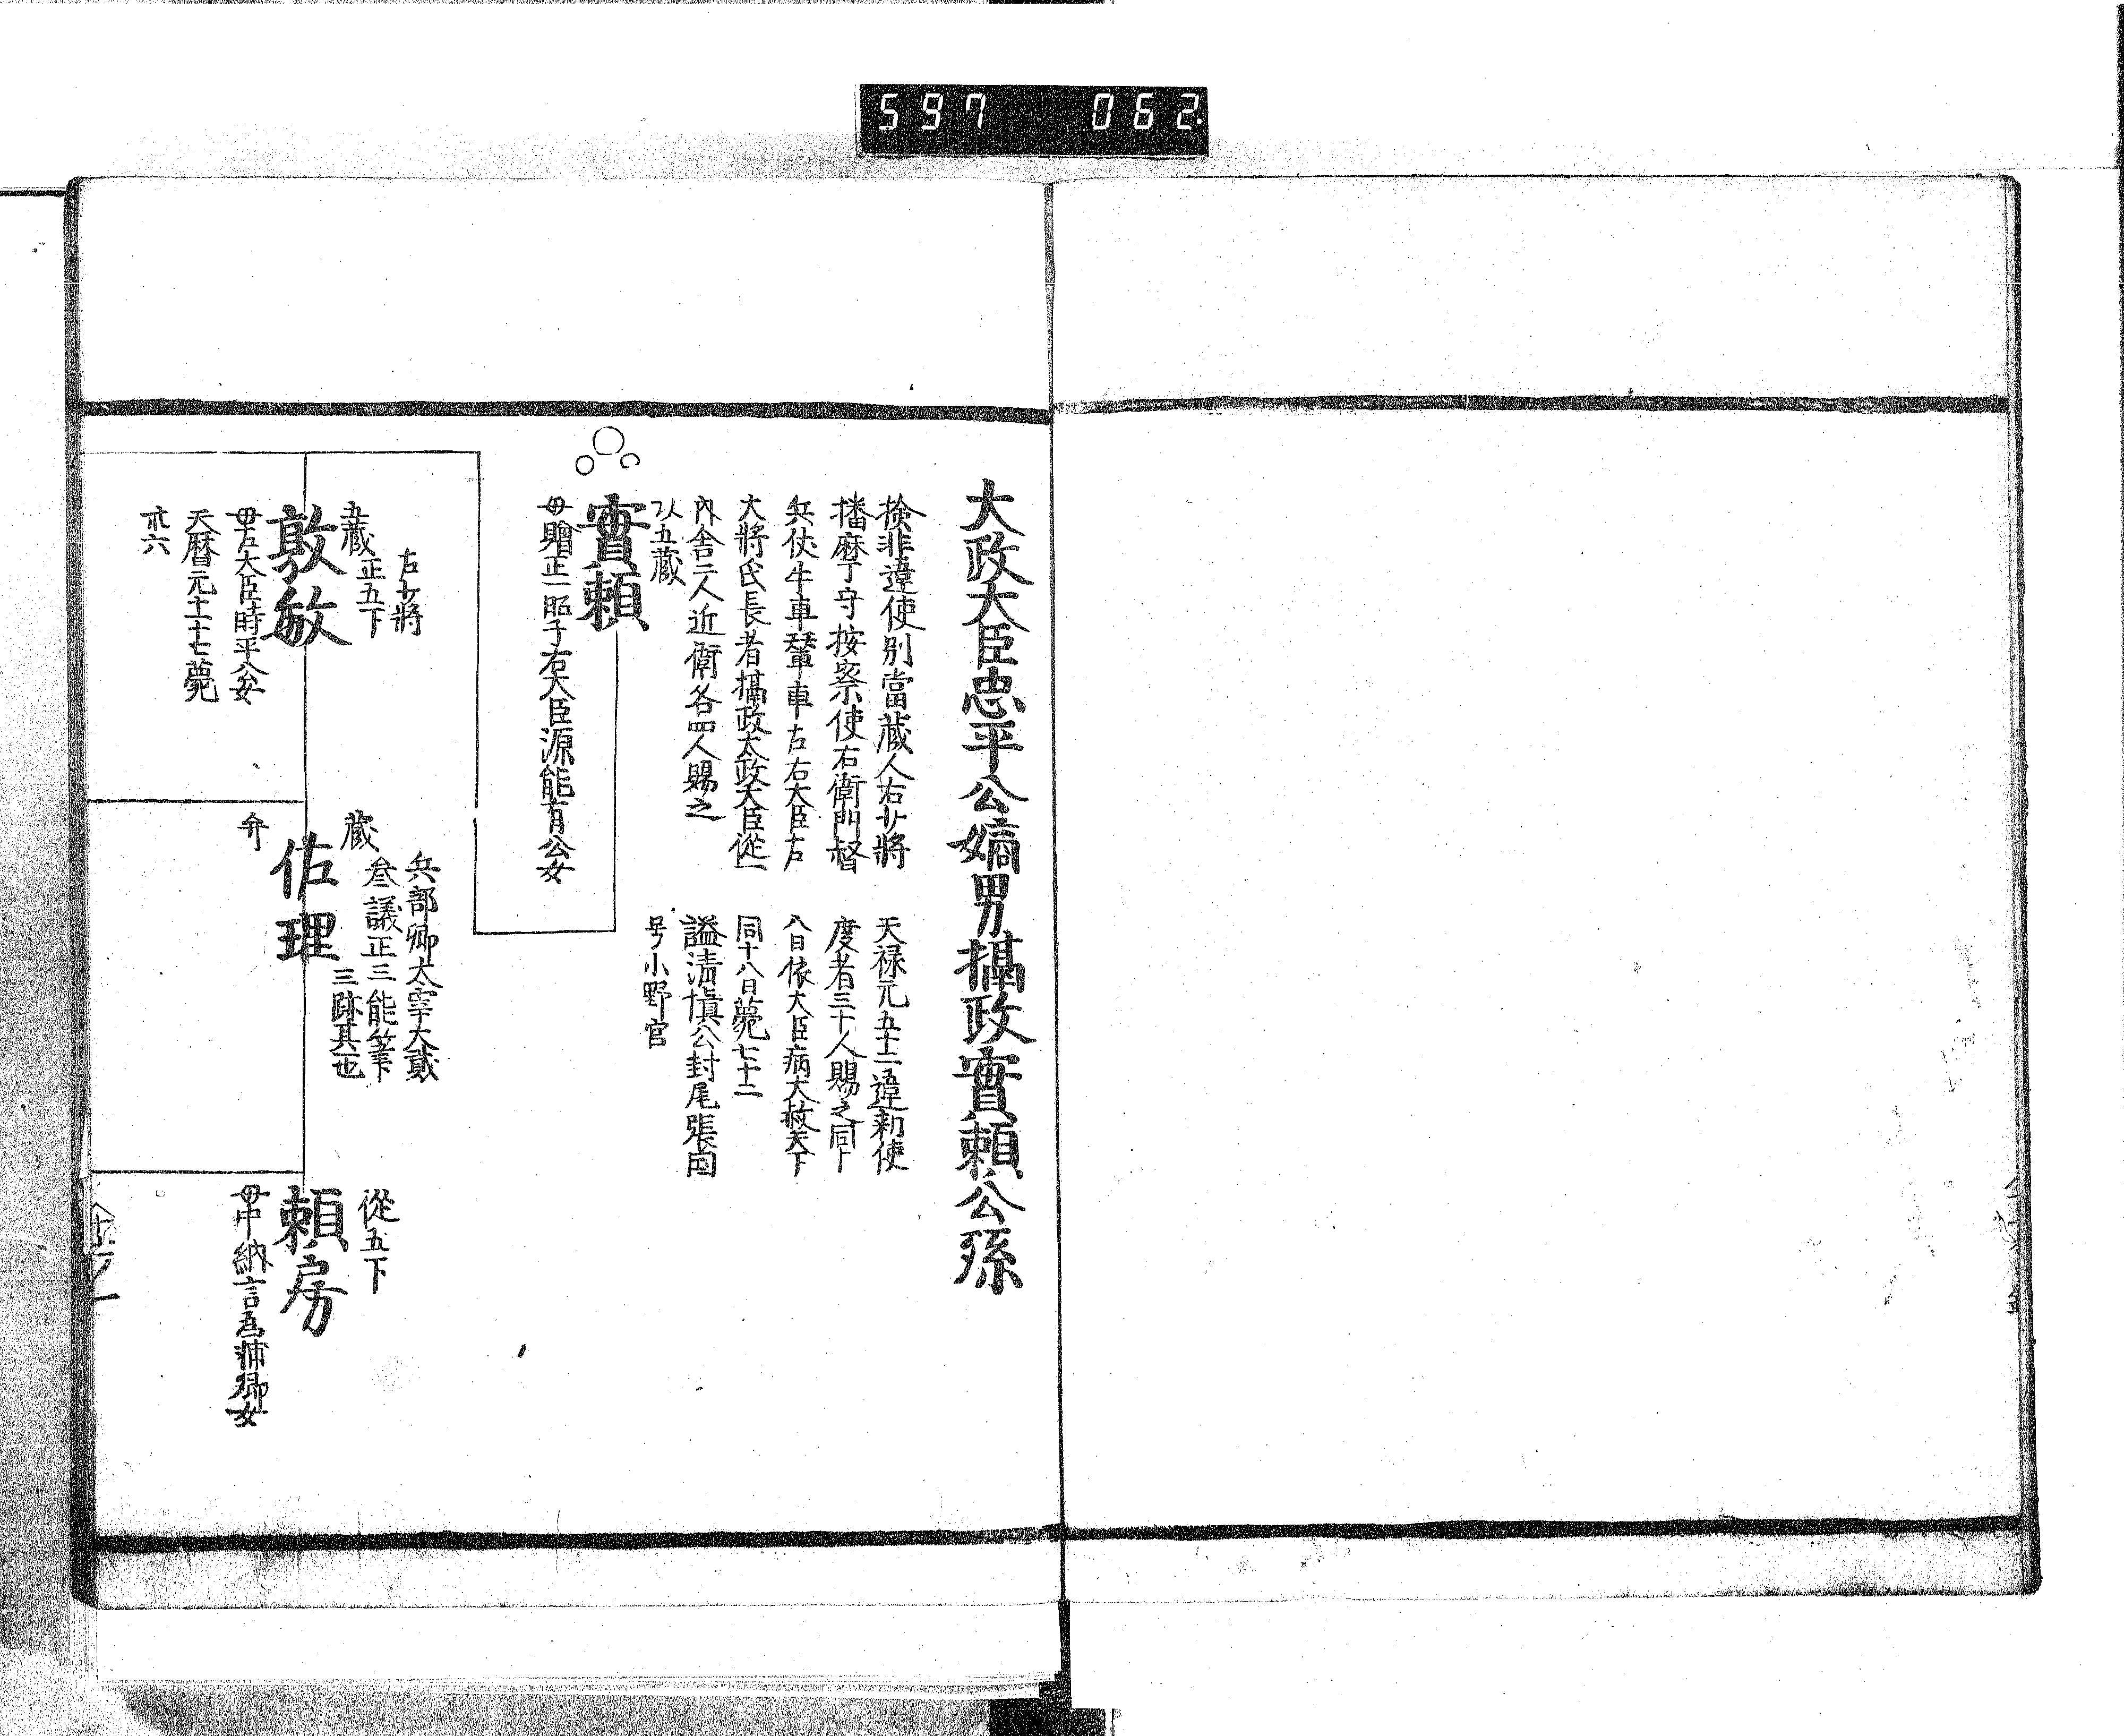 597 062
大政大臣忠平公嫡男攝政實頼公孫
検非違使別當蔵人右少將
播磨丁守按察使右衛門督
兵仗牛車輦車左右大臣右
大將氏長者攝政太政大臣從一
内舎二人近衛各四人賜之
以五蔵
天禄元五十二遣勅使
度者三十人賜之同十
八日依大臣病大赦天下
同十八日薨七十二
謚清慎公封尾張国
号小野宮
實頼
母贈正一昭子右大臣源能有公女
左少將
五蔵正五下
敦敏
母左大臣時平公女
天暦元十一十七薨
卅六
兵部卿太宰大貳
蔵
参議正三能筆
三跡其也
佐理
弁
從五下
頼房
母中納言為輔卿女